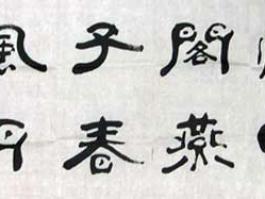 閣燕
子春
風